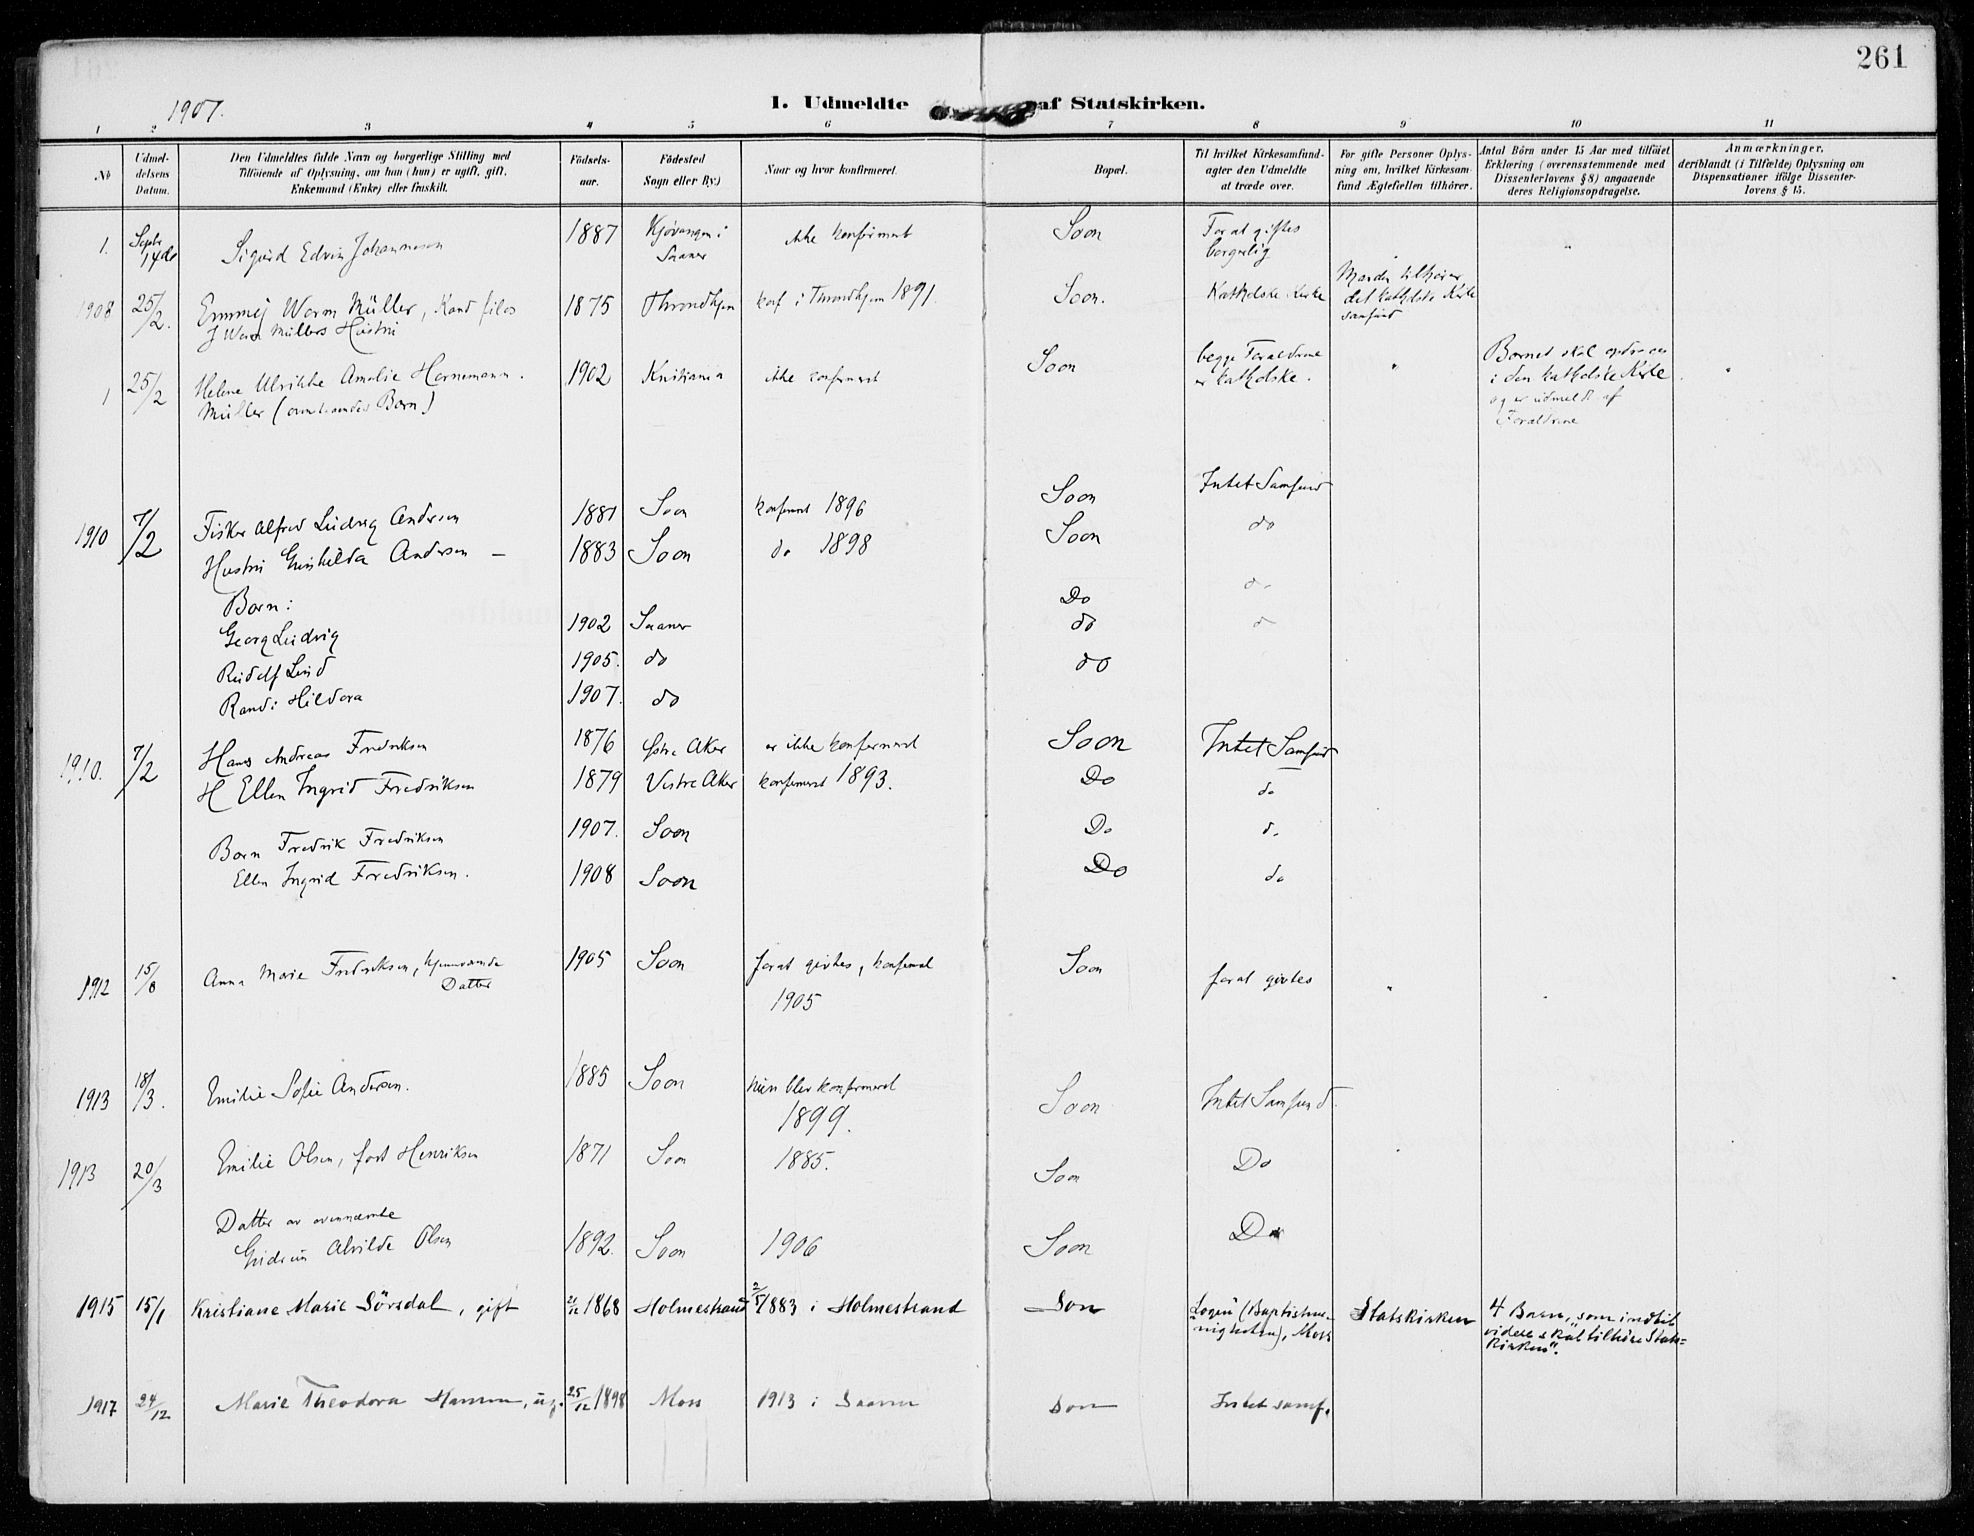 261
1907.
I. Udmeldte af Statskirken.
1 2 3 4 5 6 7 8 9 10 11
No
Udmel-
delsens
Datum.
Den Udmeldtes fulde Navn og borgerlige Stilling med
Tilføiende af Oplysning, om han (hun) er ugift, gift,
Enkemand (Enke) eller fraskilt.
Fødsels-
aar.
Fødested
Sogn eller By.)
Naar og hvor konfirmeret.
Bopæl.
Til hvilket Kirkesamfund-
agter den Udmeldte
at træde over.
For gifte Personer Oplys-
ning om, hvilket Kirkesam-
fund Ægtefællen tilhører.
Antal Børn under 15 Aar med tilføiet
Erklæring (overensstemmende med
Dissenterlovens § 8) angaaende
deres Religionsopdragelse.
Anmærkninger,
deriblandt (i Tilfælde) Oplysning om
Dispensationer ifølge Dissenter-
lovens § 15.
1. Septr 14de Sigurd Edvin Johannesen 1887 Kjøvangen i Saaner ikke konfirmert Soon For at giftes borgerlig "
1908 25/2. Emmej Worm Müller, Kand filos 1875 Throndhjem konf i Throndhjem 1891. Soon. Katholske Kirke Manden tilhører det katholske Kirke samfund
J Worm Müllers Hustru
1 25/2 Helene Ulrikke Amalie Hornemann. 1902 Kristiania ikke konfirmert Soon begge Forældrene er katholske. " Barnet skal opdrages i den katholske Kirke og er udmeldt af Forældrene "
Müller (ovenstaaendes Barn)
1910 7/2 Fisker Alfred Ludvig Andersen 1881 Soon konfirmert 1896 Soon Intet Samfund
Hustru Gunhilda Andersen — 1883 Soon do 1898 Soon do
Barn: Do do
Georg Ludvig 1902 Saaner do do
Rudolf Lund 1905. do do
Randi Hildora 1907. do
1910. 7/2 Hans Andreas Fredriksen 1876 Østre Aker er ikke konfirmert Soon Intet Samfund
H Ellen Ingrid Fredriksen 1879 Vestre Aker konfirmeret 1893. Do do
Barn Fredrik Fredriksen 1907. Soon Do do
Ellen Ingrid Fredriksen. 1908 Soon Do do
1912 15/8 Anna Marie Fredriksen, hjemmeværende Datter 1905 Soon for at giftes, konfirmert 1905 Soon for at giftes "
1913 18/3. Emilie Sofie Andersen. 1885 Soon hun blev konfirmeret 1899. Soon Intet Samfund.
1913 20/3 Emilie Olsen, født Henriksen 1871 Soon 1885. Soon Do
Datter av ovennævnte
Gudrun Alvilde Olsen 1892. Soon 1906 Soon Do
1915 15/1 Kristiane Marie Sørsdal, gift 21/12 1868 Holmestrand 2/5 1883 i Holmestrand Son (Baptistme-nigheten), Moss Statskirken 4 Barn, "som indtil videre skal tilhøre Stats=kirken".
1917 24/12 Marie Theodora Hansen, ug. 25/12 1898 Moss 1913 i Saaner Son Intet samf.